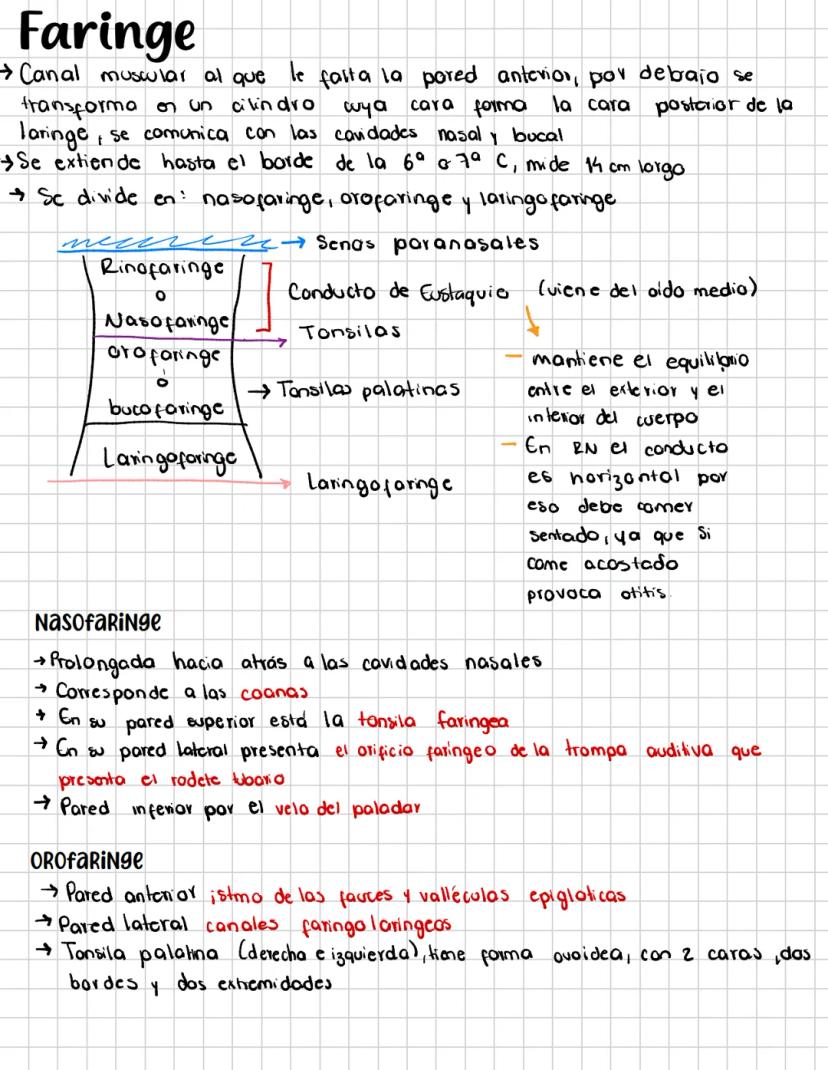 Faringe
→ Canal muscular al que le falta la pared anterior, por debajo se
transforma en un cilindro cuya cara forma la cara posterior de la
laringe, se comunica con las cavidades nasal y bucal
→ Se extiende hasta el borde de la 6ª o 7ª C, mide 14 cm largo
→ Se divide en: nasofaringe, orofaringe y laringofaringe
→ Senos paranasales
Rinofaringe
o
Nasofaringe
Conducto de Eustaquio (viene del oido medio)
→ Tonsilas
orofaringe
o
bucofaringe
→ Tonsilas palatinas
Laringofaringe
→ Laringofaringe
– mantiene el equilibrio
entre el exterior y el
interior del cuerpo
– En RN el conducto
es horizontal por
eso debe comer
sentado, ya que si
come acostado
provoca otitis.
NASOFARINGE
→ Prolongada hacia atrás a las cavidades nasales
→ Corresponde a las coanas
→ En su pared superior está la tonsila faringea
→ En su pared lateral presenta el orificio faringeo de la trompa auditiva que
presenta el rodete tubario
→ Pared inferior por el velo del paladar
OROFARINGE
→ Pared anterior istmo de las fauces y valléculas epigloticas
→ Pared lateral canales faringolaringeos
→ Tonsila palatina (derecha e izquierda), tiene forma ovoidea, con 2 caras, dos
bordes y dos extremidades